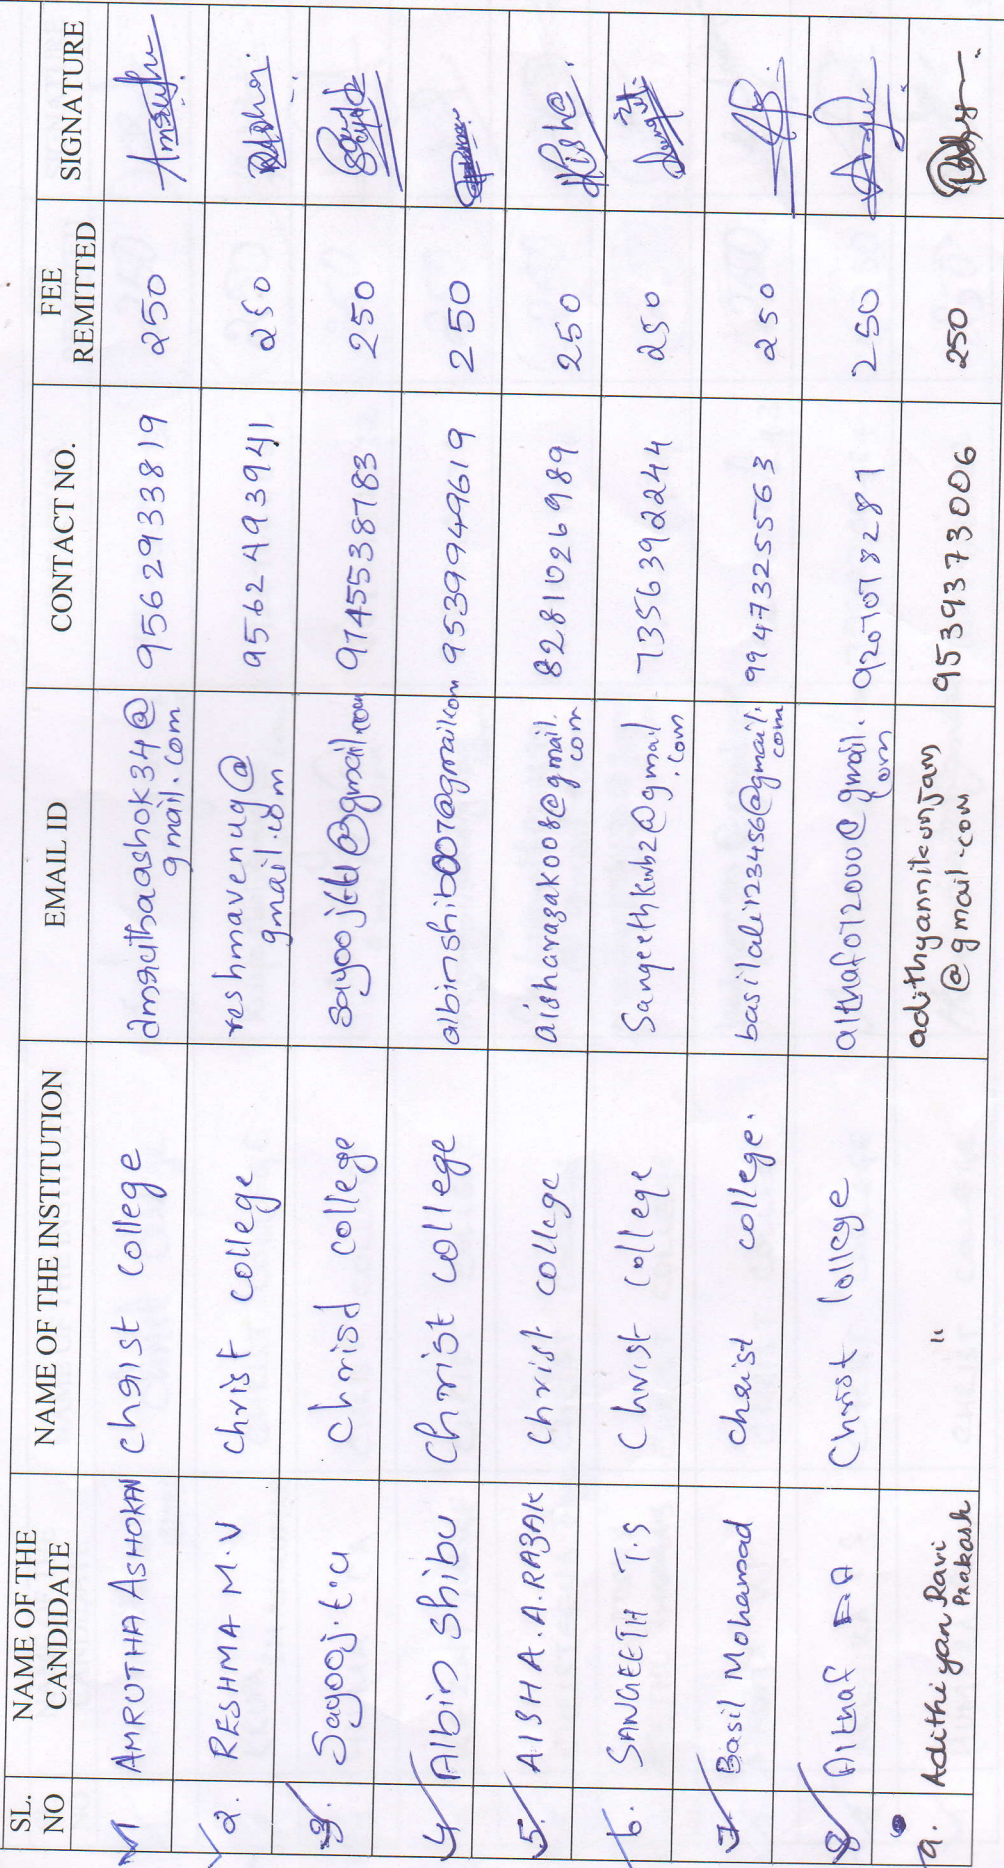 SL. NO NAME OF THE CANDIDATE NAME OF THE INSTITUTION EMAIL ID CONTACT NO. FEE REMITTED SIGNATURE
1 AMRUTHA ASHOKAN Christ College amruthaashok34@gmail.com 9562933819 250
2. RESHMA M.V Christ College reshmavenug@gmail.com 9562493941 250
3. Sayooj.t.u Christ College 9745538783 250
4 Albin Shibu Christ College albinshib007@gmail.com 9539949619 250
5. AISHA.A.RAZAK Christ College aisharazak008@gmail.com 8281026989 250
6. SANGEETH T.S Christ College Sangeethkwb2@gmail.com 7356392244 250
7 Basil Mohamood Christ College. basilali123456@gmail.com 9947325563 250
8 Althaf Christ College althaf072000@gmail.com 9207078287 250
9. Adithiyan Ravi Prakash " adithyannikunjam@gmail.com 9539373006 250